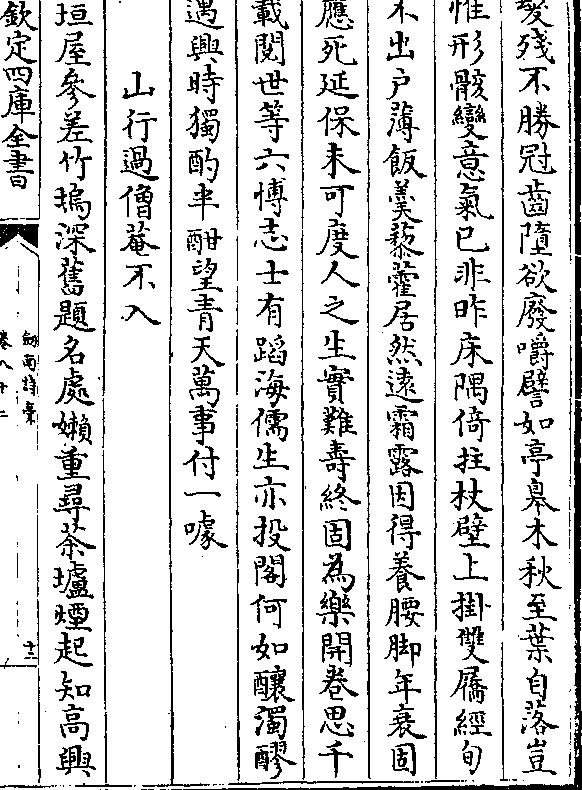 髮殘不勝冠齒墮欲廢嚼譬如亭皋木秋至葉自落豈
惟形骸變意氣已非昨床隅倚拄杖壁上掛雙屩經旬
不出户薄飯羮藜藿居然逺霜露因得養腰脚年衰固
應死延保未可度人之生實難壽終固為樂開卷思千
載閱世等六博志士有蹈海儒生亦投閣何如釀濁醪
遇興時獨酌半酣望青天萬事付一噱
山行過僧菴不入
垣屋參差竹塢深舊題名處嬾重尋茶爐煙起知高興
欽定四庫全書
劒南詩藁
卷八十二
十三